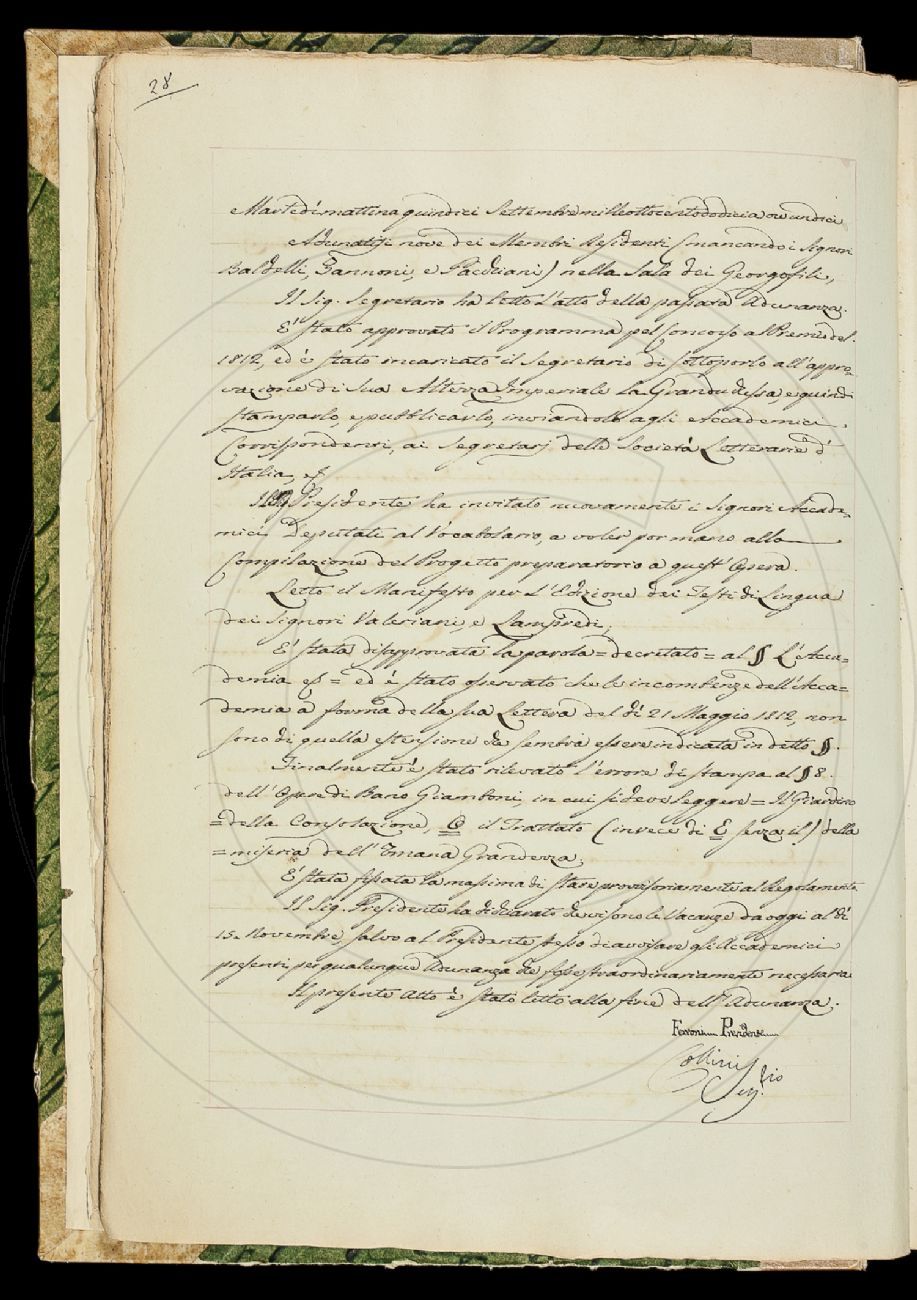 28
Martedì mattina quindici Settembre milleottocentododici a ore undici
Adunatisi nove dei Membri Residenti (mancando i Signori
Baldelli, Zannoni, e Pacchiani) nella Sala dei Georgofili,
Il Sig. Segretario ha letto l'atto della passata Adunanza.
E' stato approvato il Programma pel Concorso al Premio del
1812, ed è stato incaricato il Segretario di sottoporlo all'appro-
vazione di Sua Altezza Imperiale La Granduchessa, e quindi
stamparlo, e pubblicarlo, inviandolo agli Accademici
Corrispondenti, ai Segretarj delle Società Letterarie d'
Italia,
Il Presidente ha invitato nuovamente i Signori Accade-
mici Deputati al Vocabolario, a voler por mano alla
Compilazione del Progetto preparatorio a quest'Opera.
Letto il Manifesto per l'Edizione dei Testi di Lingua
dei Signori Valeriani, e Lampredi,
E' stata disapprovata la parola = decretato = al § L'Acca=
demia = ed è stato osservato che le incombenze dell'Acca=
demia a forma della sua Lettera del dì 21 Maggio 1812, non
sono di quella estensione che sembra essere indicata in detto §.
Finalmente è stato rilevato l'errore di stampa al § 8.
dell'Opere di Bono Giamboni, in cui si deve leggere = Il Giardino
= della Consolazione, O il Trattato (invece di E senza il) della
= miseria dell'Umana Grandezza,
E' stata fissata la massima di stare provvisoriamente al Regolamento
Il Sig. Presidente ha dichiarato che vi sono le Vacanze da oggi al dì
15. Novembre, salvo al Presidente stesso di avvisare gli Accademici
presenti per qualunque Adunanza che fosse straordinariamente necessaria
Il presente Atto è stato letto alla fine dell'Adunanza.
Ferroni Presidente
Collini Seg.rio